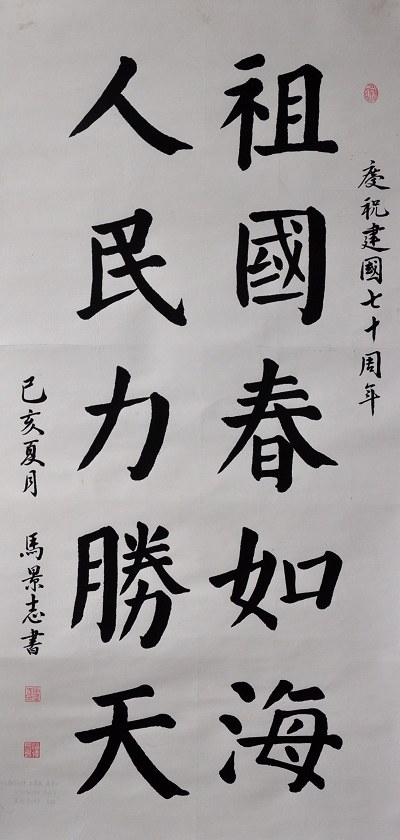 慶祝建國七十周年
祖國春如海
人民力勝天
己亥夏月 馬景志書